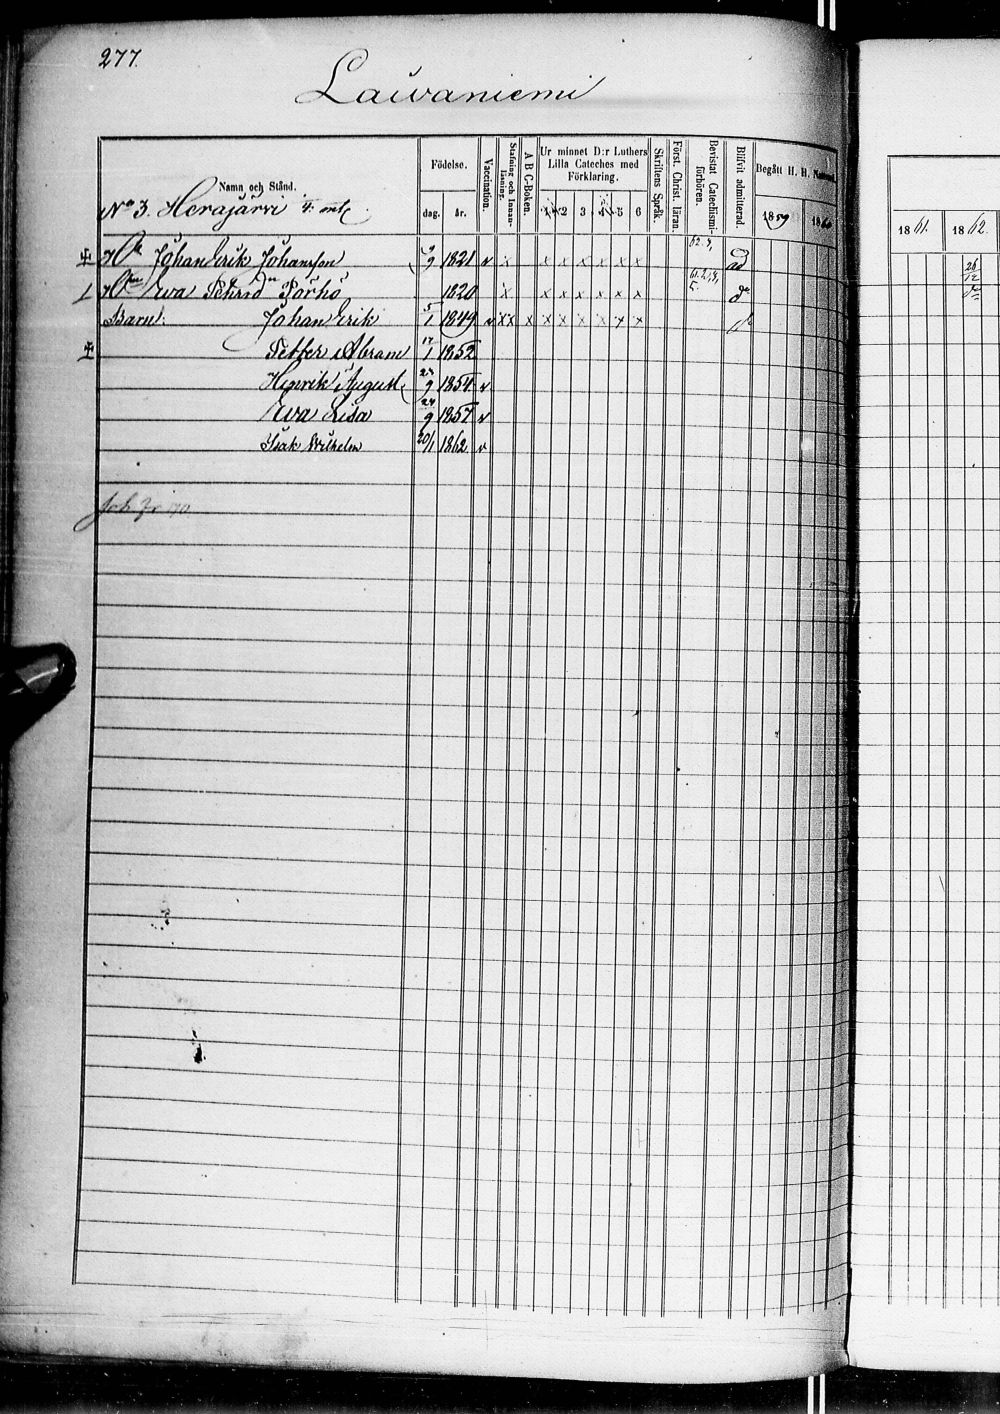 277.
Laivaniemi
Namn och Stånd. Födelse. dag. år. Vaccination. Stafning och Innanläsning. A B C-Boken. Ur minnet D:r Luthers Lilla Cateches med Förklaring. 1 2 3 4 5 6 Skriftens Språk. Först. Christ. läran. Bevistat Catechismiförhören. Blifvit admitterad. Begått H. H. Nattvard. 1859 1860 1861. 1862.
No 3. Herajärvi
Johan Erik Johansson 9 1821 v x x x x x x x 62.
Ewa 1820 x x x x x x x 26/12
Barn: Johan Erik 5/1 1849 v x x x x x x x x x
Petter Abram 17/1 1852
Henrik August 23/9 1854 v
Ewa Lisa 24/9 1857 v
Isak Wilhelm 20/1 1862 v